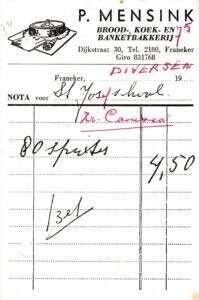 P. MENSINK
BROOD-, KOEK- EN
BANKETBAKKERIJ
75
Dijkstraat 30, Tel. 2180, Franeker
Giro 831768
DIVERSEN
Franeker, 19
NOTA voor St Josefschool
80 4,50